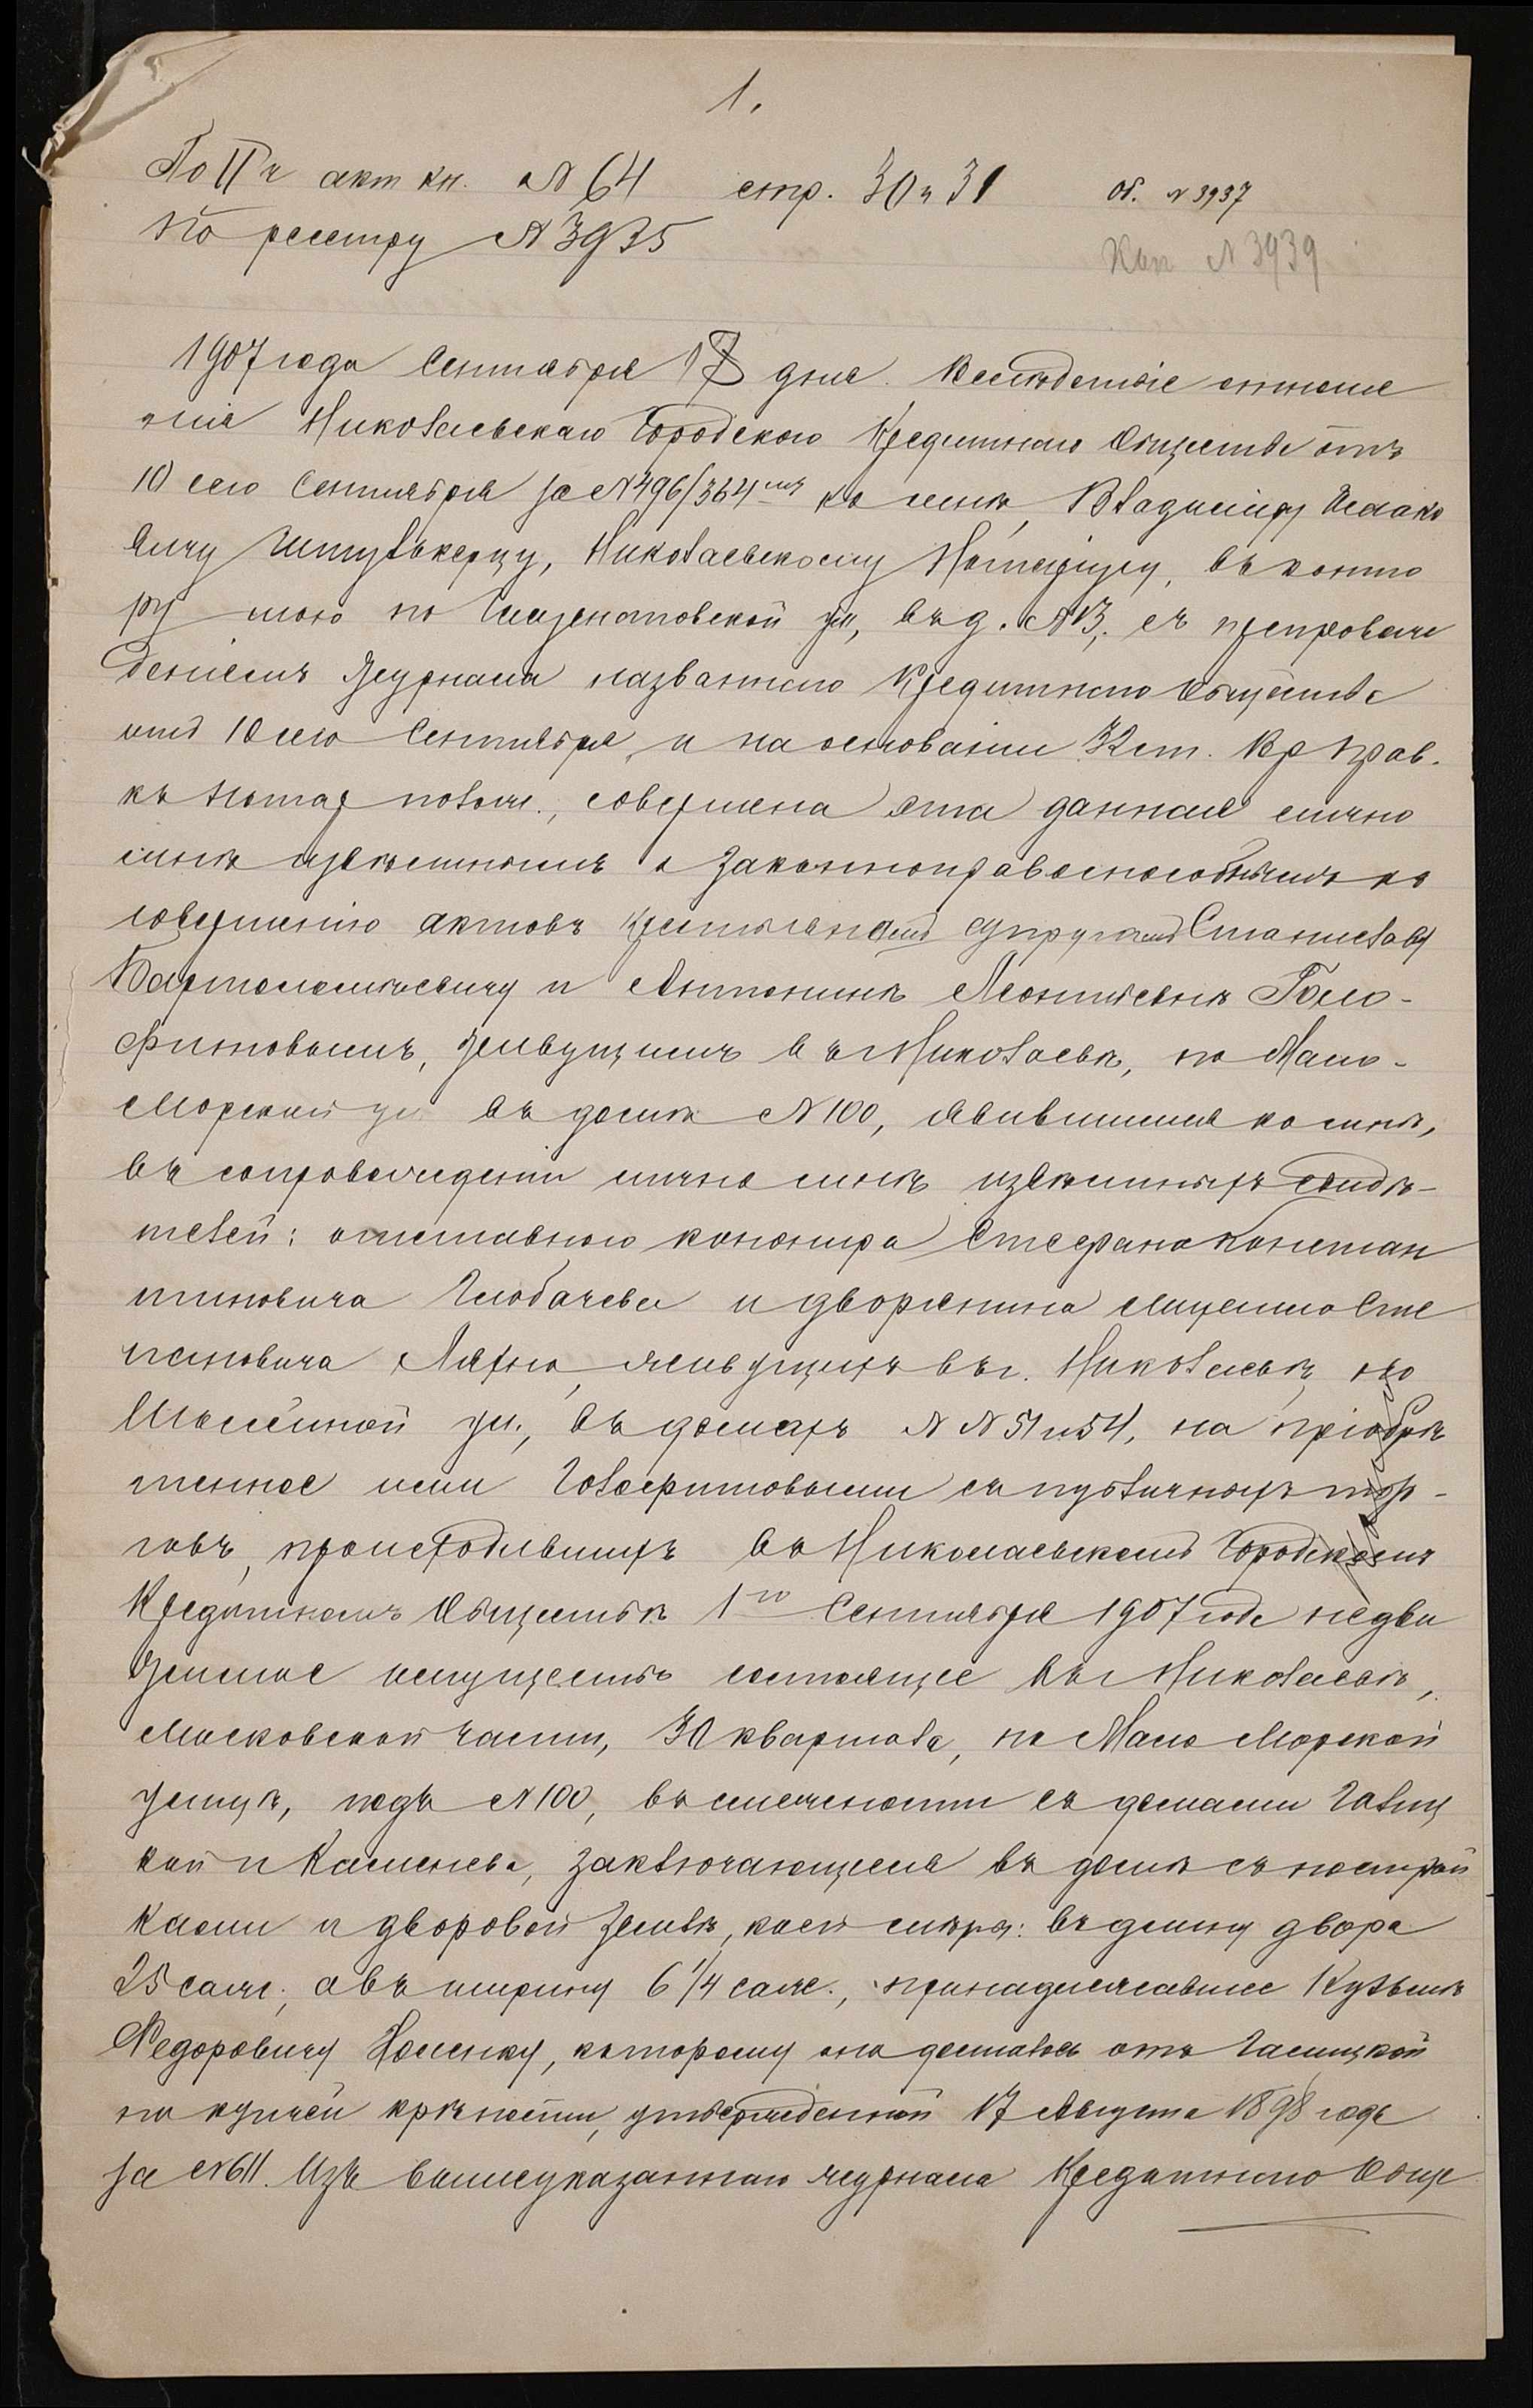 1.
По II ч акт кн. № 64 стр. 30 и 31 об. № 3937
По реестру № 3935 Коп № 3939
1907 года Сентября дня. Вследствіе отноше
нія Николаевскаго Городского Кредитнаго Общества отъ
10 сего Сентября за № 496/364 ко мнѣ, Владиміру Исаако
вичу Николаевскому Нотаріусу, въ конто
ру мою по ул, въ д. № 13, съ препровож
деніемъ журнала названнаго Кредитнаго Общества
отъ 10 сего Сентября, и на основаніи Вр прав.
къ Нотар полож., совершена эта данная лично
мнѣ извѣстнымъ и законноправоспособнымъ ко
совершенію актовъ крестьянамъ супругамъ Станиславу
Бартоломеевичу и Антонинѣ Леонтьевнѣ Голо-
фитовымъ, живущимъ въ г Николаевѣ, по Мало-
Морской ул въ домѣ № 100, явившимся ко мнѣ,
въ сопровожденіи лично мнѣ извѣстныхъ свидѣ-
телей: отставного Стефана Констан
тиновича и дворянина Сте
пановича живущихъ въ г. Николаевѣ, по
ул., въ домахъ № № 51 и 54, на пріобрѣ
тенное ими Голофитовыми съ публичныхъ тор-
говъ, происходившихъ въ Николаевскомъ Городскомъ
Кредитномъ Обществѣ 1го Сентября 1907 года недви
жимое имущество состоящее въ г Николаевѣ,
Московской части, 30 квартала, по Мало Морской
улицѣ, подъ № 100, въ смежности съ домами Галиц
кой и Каменева, заключающееся въ домѣ съ построй
ками и дворовой землѣ, коей мѣры: въ длину двора
25 саж., а въ ширину 6 1/4 саж., принадлежавшее Кузьмѣ
Федоровичу которому оно досталось отъ Галицкой
по купчей крѣпости, утвержденной 17 Августа 1898 года
за № 611. Изъ вышеуказаннаго журнала Кредитнаго Обще